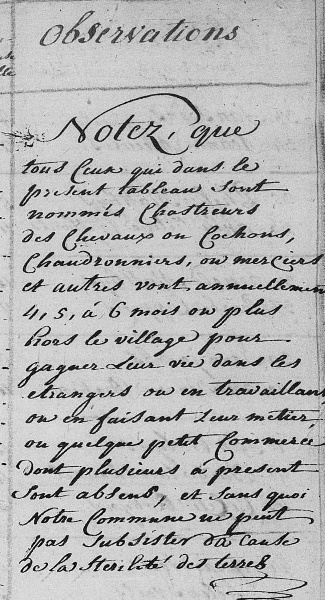 Observations
Notez, que
tous Ceux qui dans le
present tableau sont
nommés Chastreurs
des Chevaux ou Cochons,
Chaudronniers, ou merciers
et autres vont annuellemen
4, 5, à 6 mois ou plus
hors le village pour
gagner Leur vie dans les
etrangers ou en travaillant
ou en faisant Leur metier
ou quelque petit Commerce
dont plusieurs à present
sont absens, et sans quoi
Notre Commune ne peut
pas subsister à cause
de la sterilité des terres